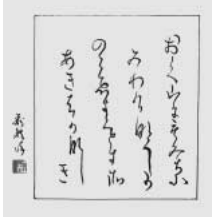 おくやまにもみちふ
みわけなくしか
のこゑきくときそ
あきはかなしき